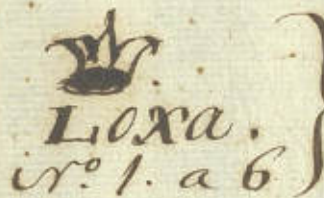 Loxa.
Nº. 1. a 6